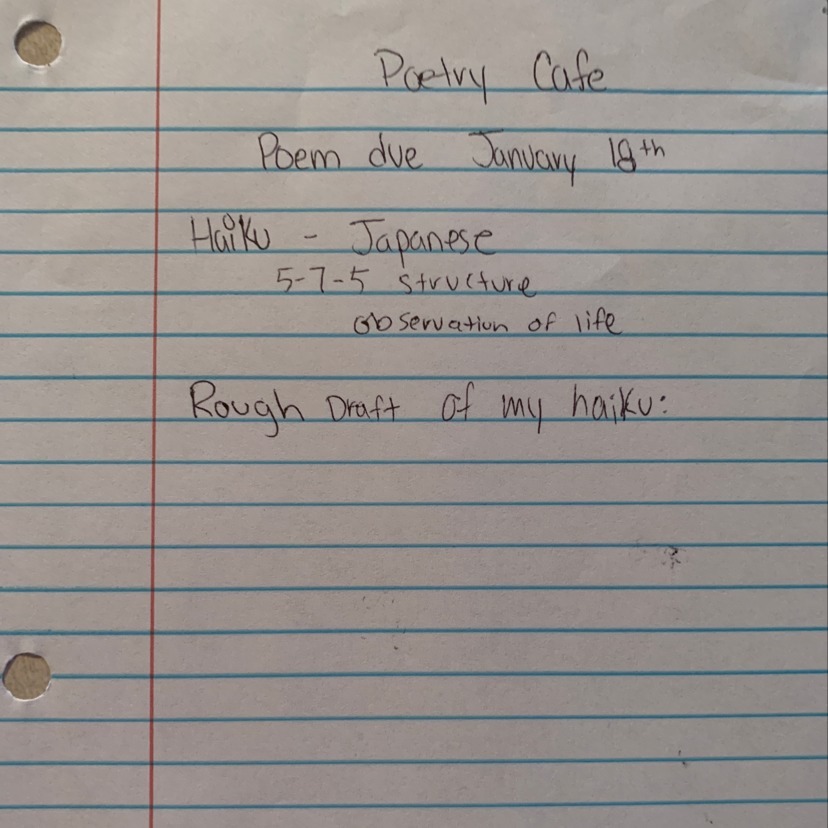 Poetry Cafe
Poem due January 18th
Haiku - Japanese
5-7-5 structure
observation of life
Rough Draft of my haiku: